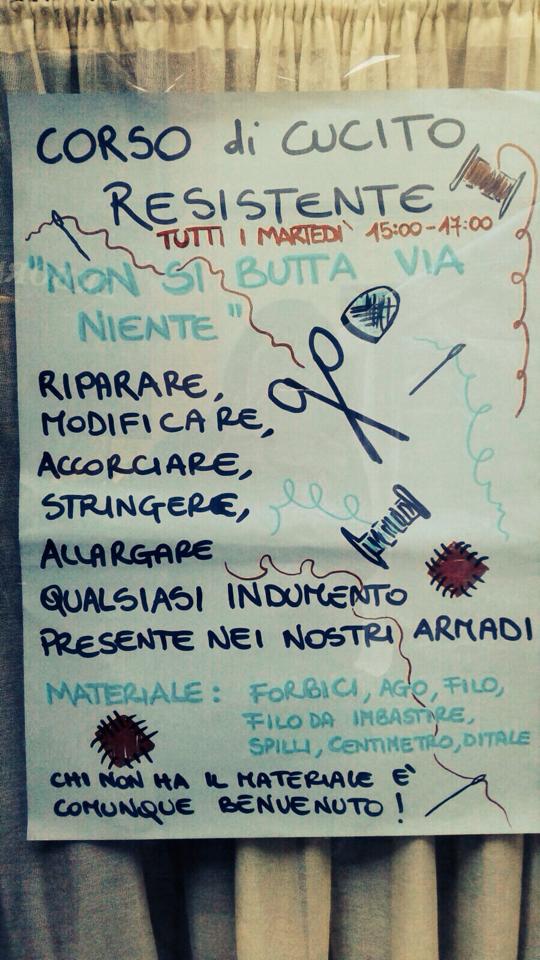 CORSO di CUCITO
RESISTENTE
TUTTI I MARTEDÌ 15:00-17:00
"NON SI BUTTA VIA
NIENTE"
RIPARARE,
MODIFICARE,
ACCORCIARE,
STRINGERE,
ALLARGARE
QUALSIASI INDUMENTO
PRESENTE NEI NOSTRI ARMADI
MATERIALE: FORBICI, AGO, FILO,
FILO DA IMBASTIRE,
SPILLI, CENTIMETRO, DITALE
CHI NON HA IL MATERIALE E'
COMUNQUE BENVENUTO!